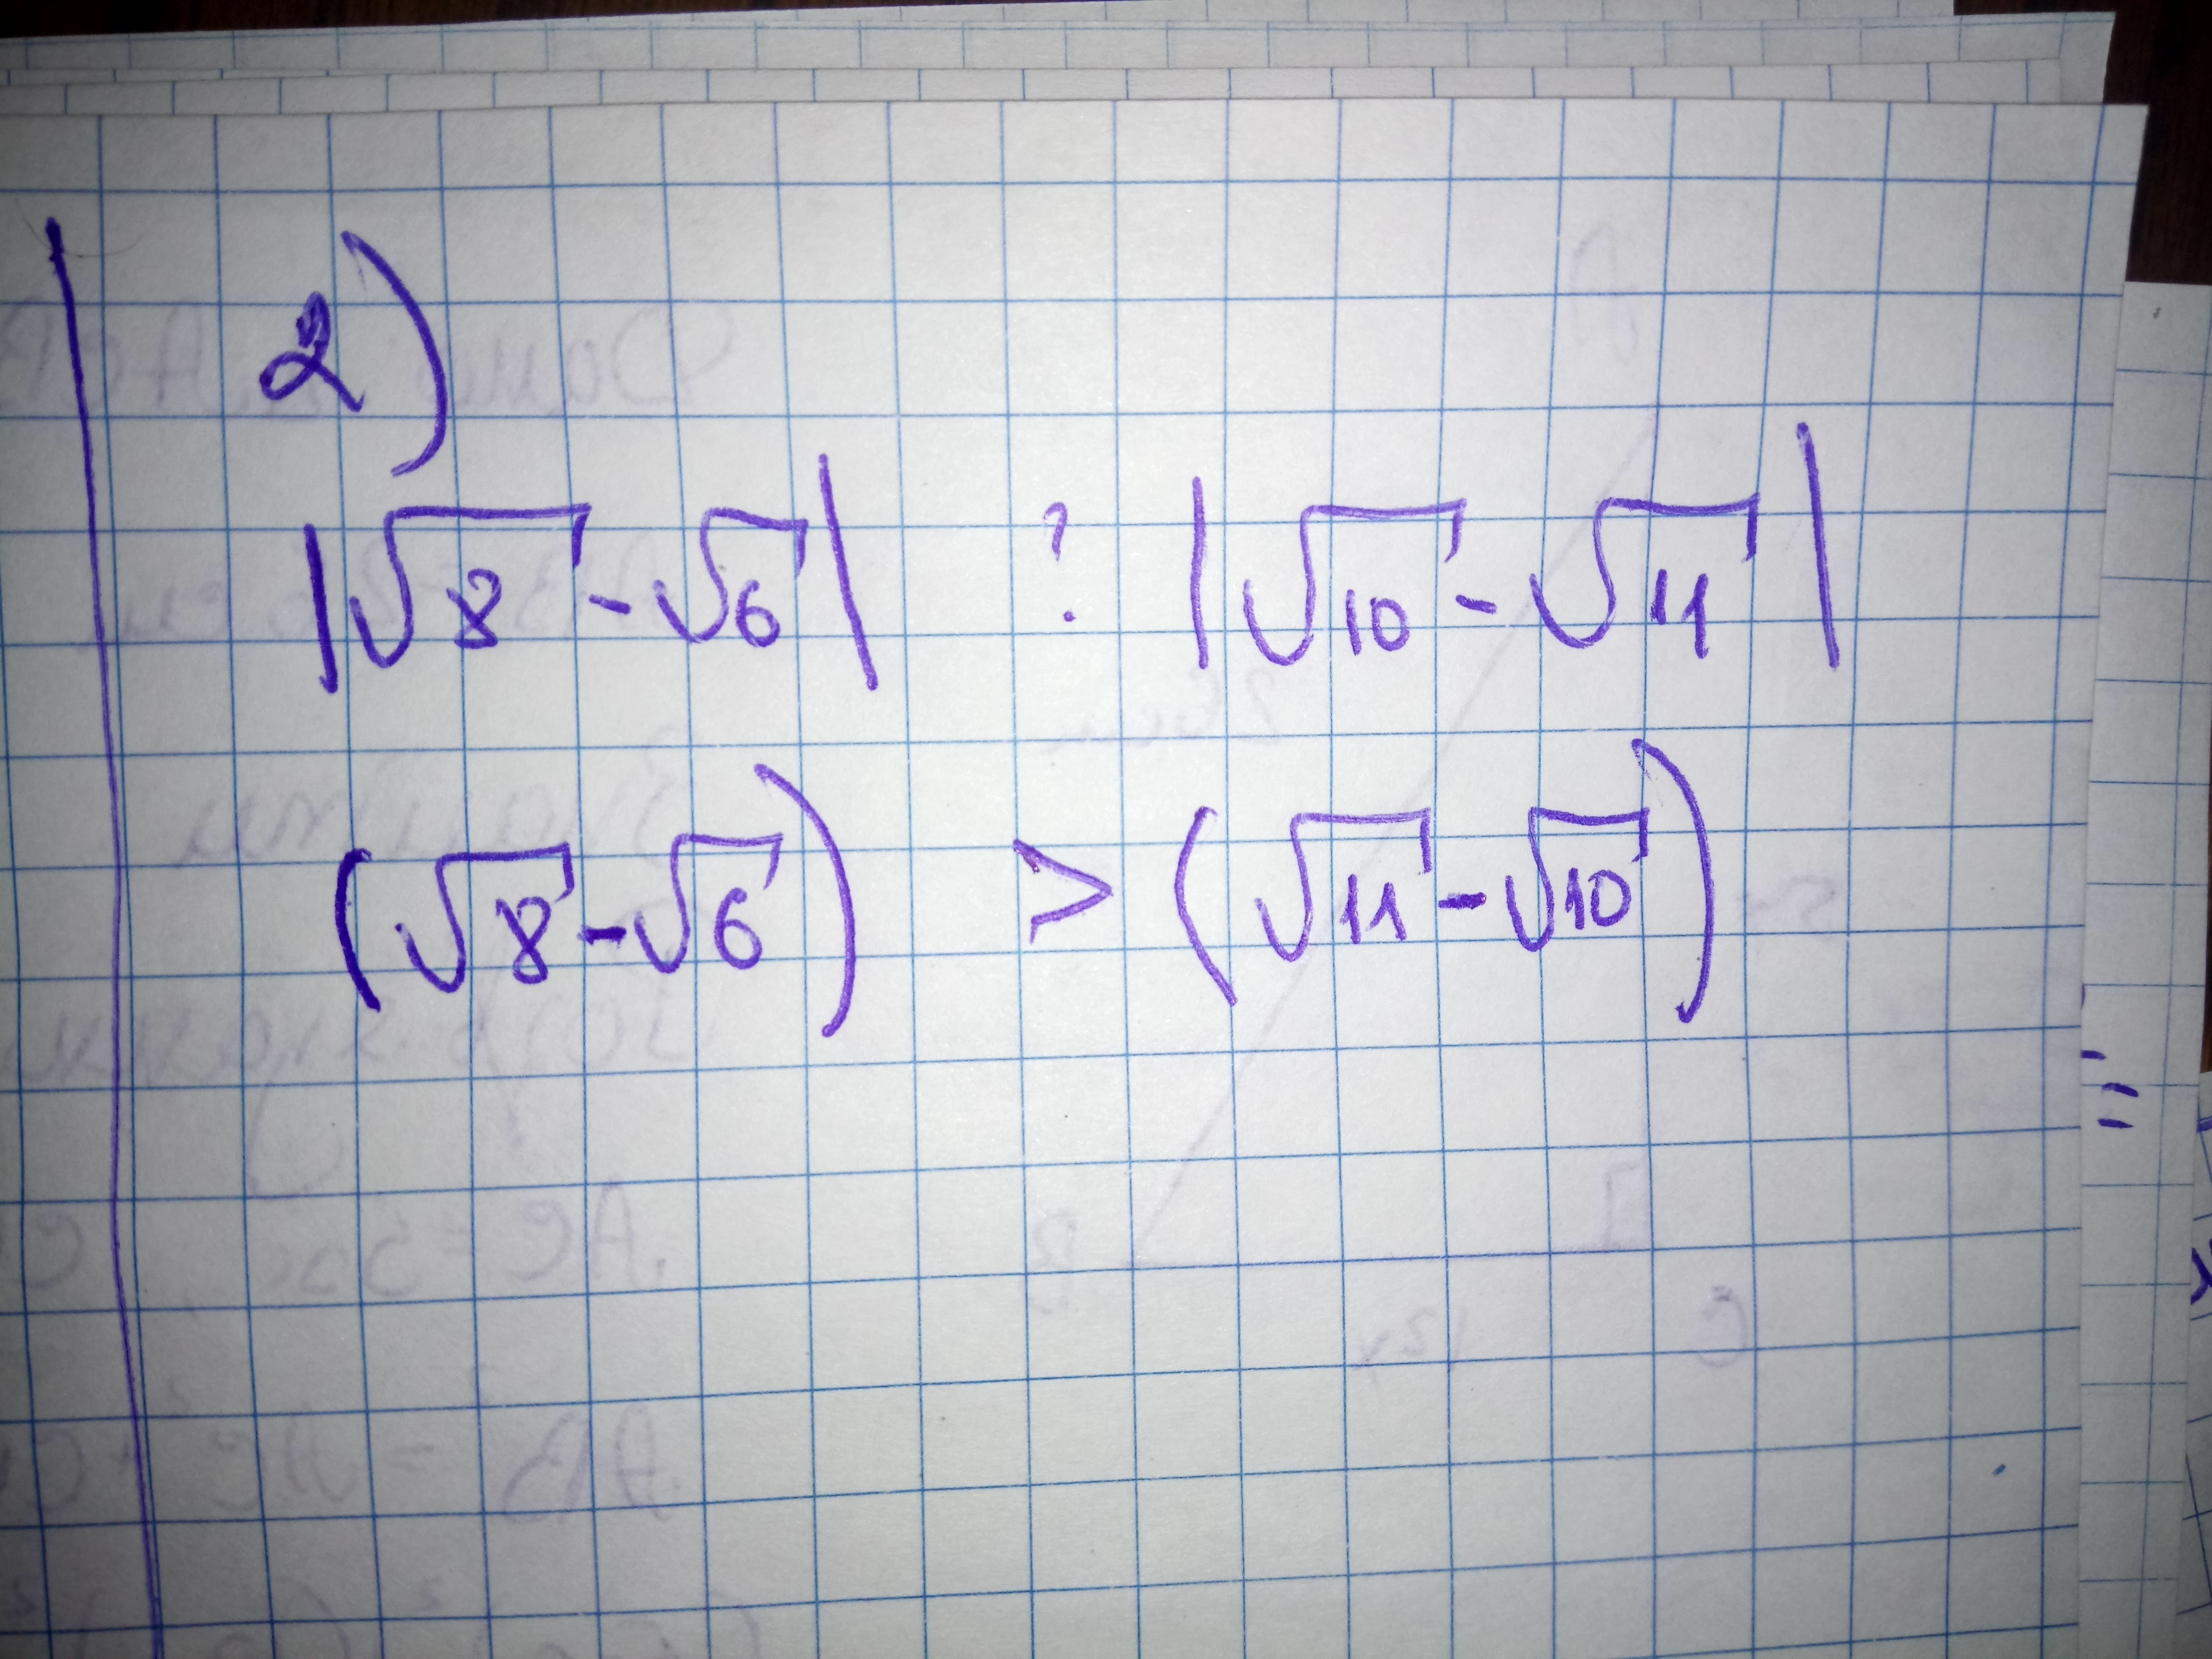 2)
|√8 - √6| ? |√10 - √11|
(√8 - √6) > (√11 - √10)